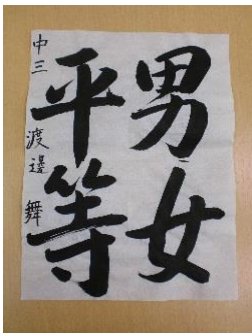 男女
平等
中三 渡邊 舞